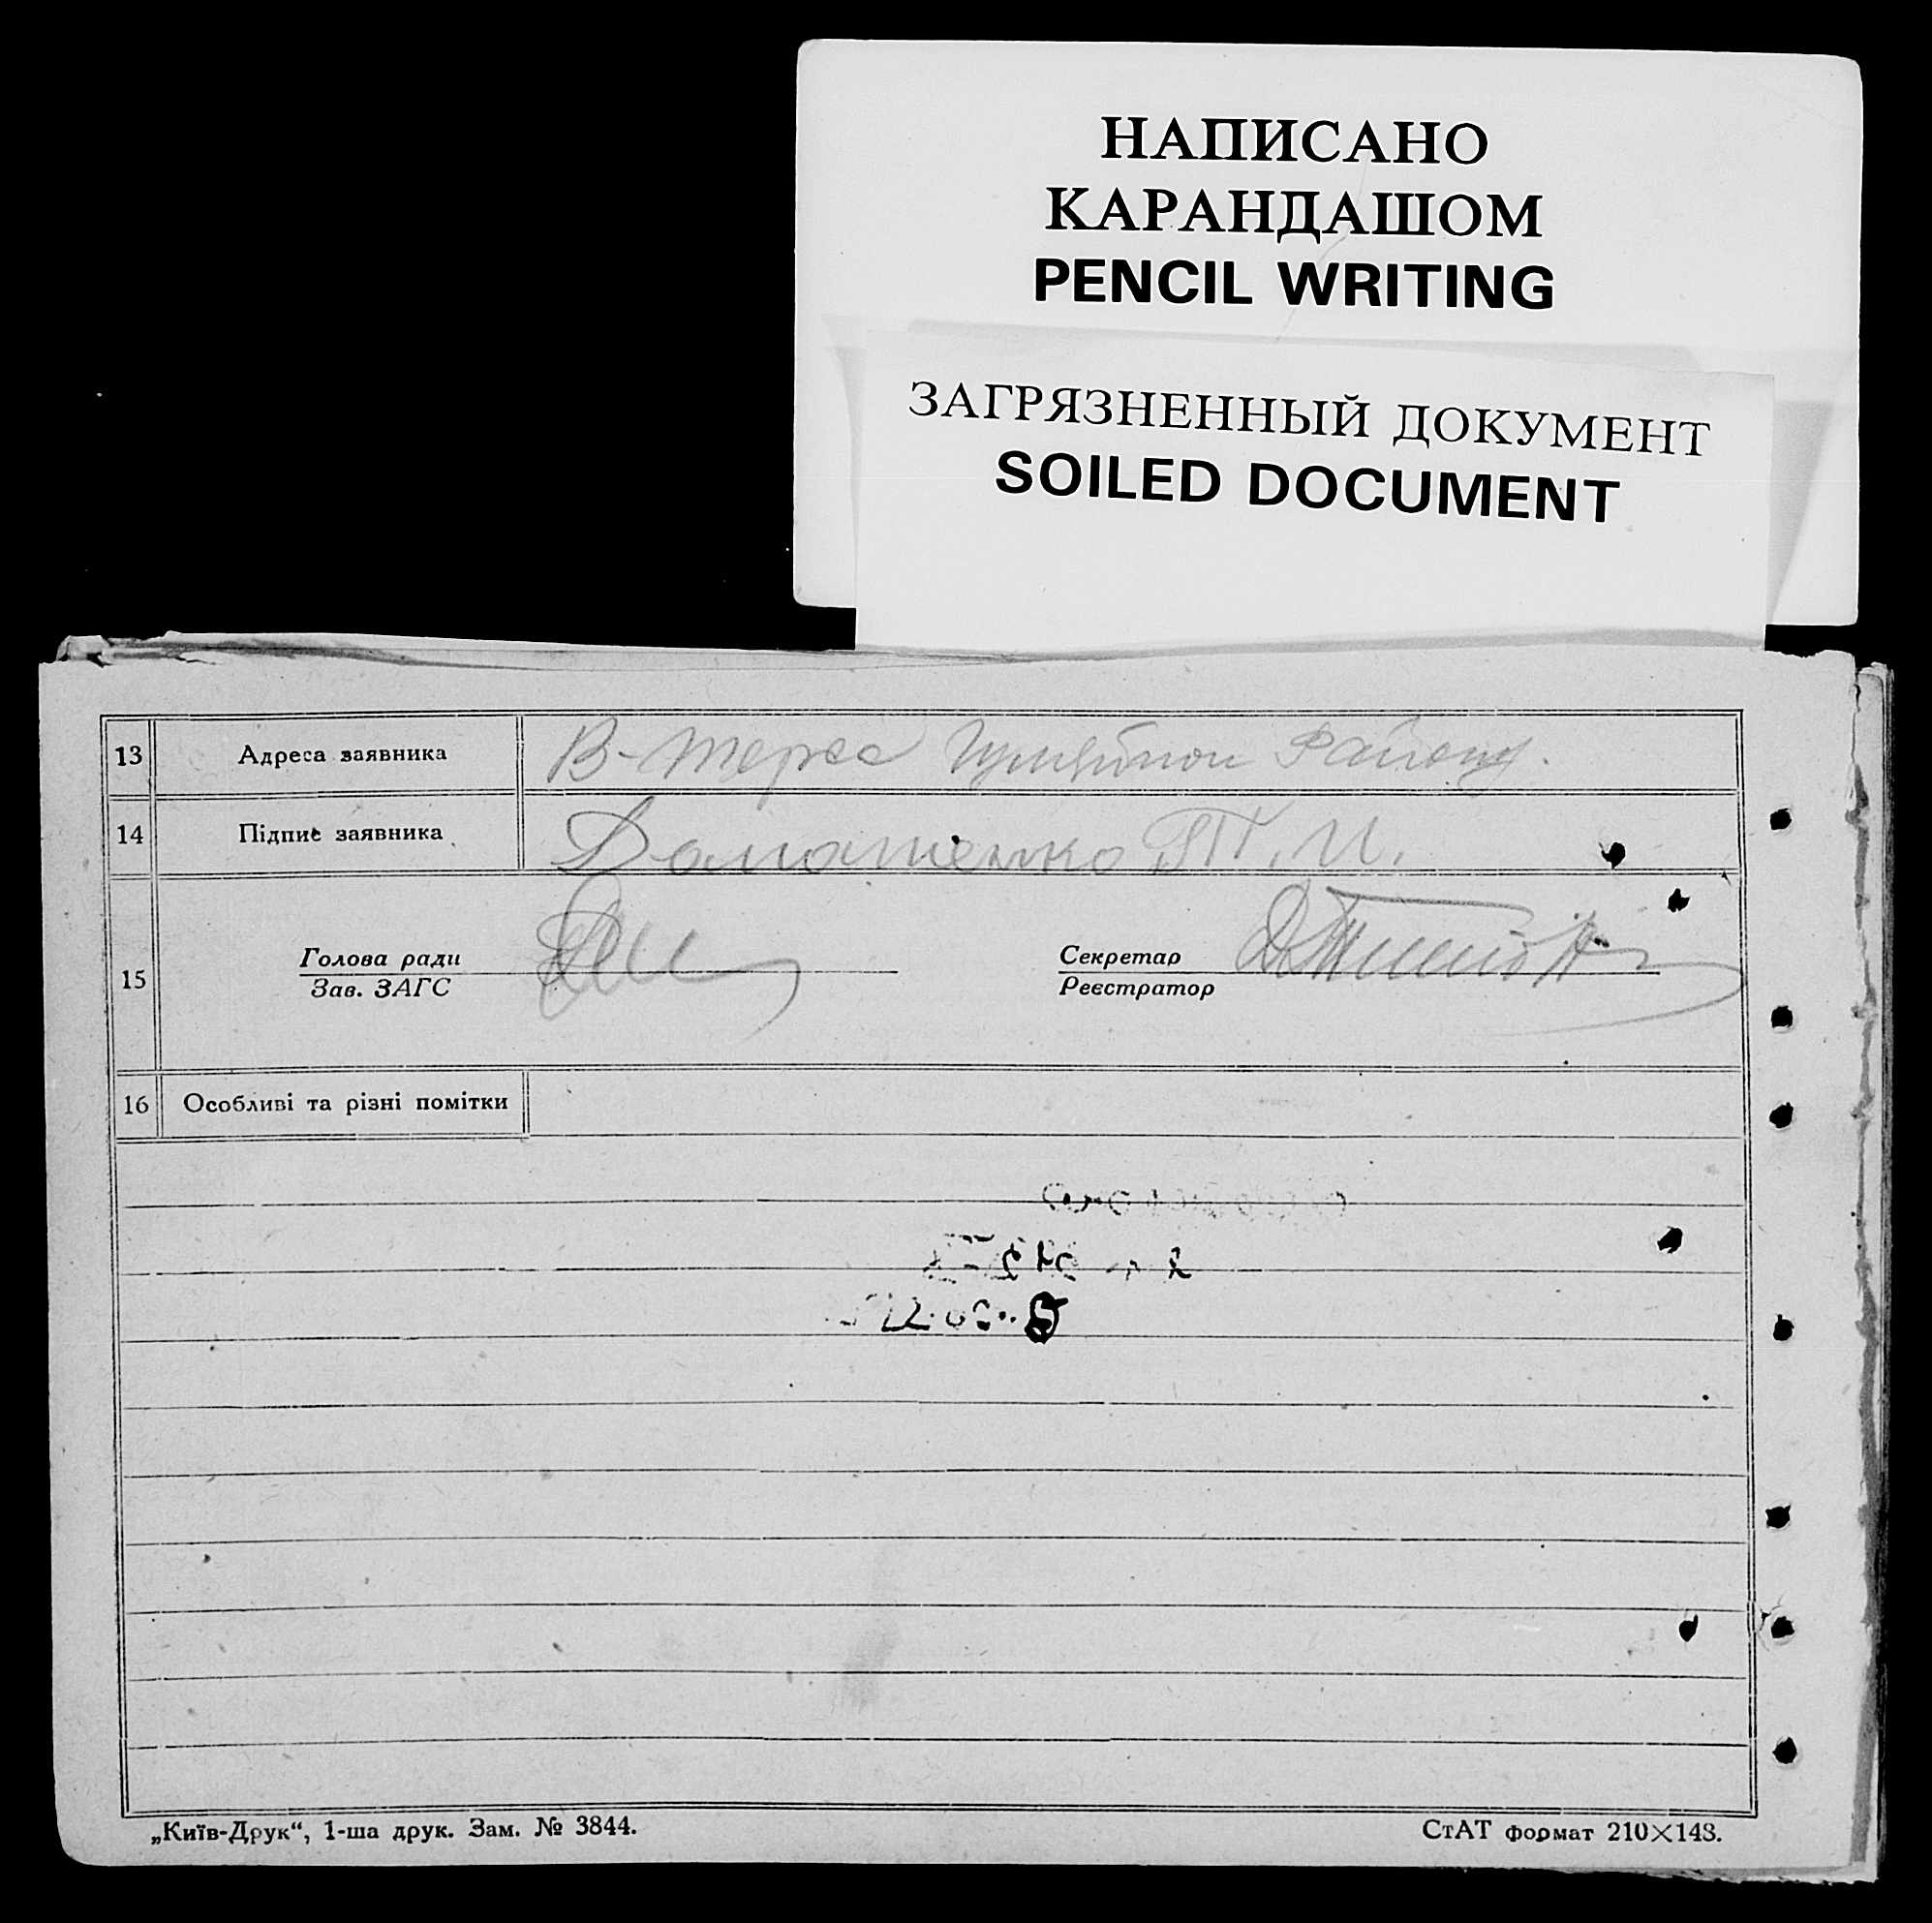 НАПИСАНО
КАРАНДАШОМ
PENCIL WRITING
ЗАГРЯЗНЕННЫЙ ДОКУМЕНТ
SOILED DOCUMENT
13 Адреса заявника В-Терса
14 Підпис заявника Доматенко П. И.
15 Голова ради Секретар
Зав. ЗАГС Реєстратор
16 Особливі та різні помітки
„Київ-Друк“, 1-ша друк. Зам. № 3844. СтАТ формат 210×148.